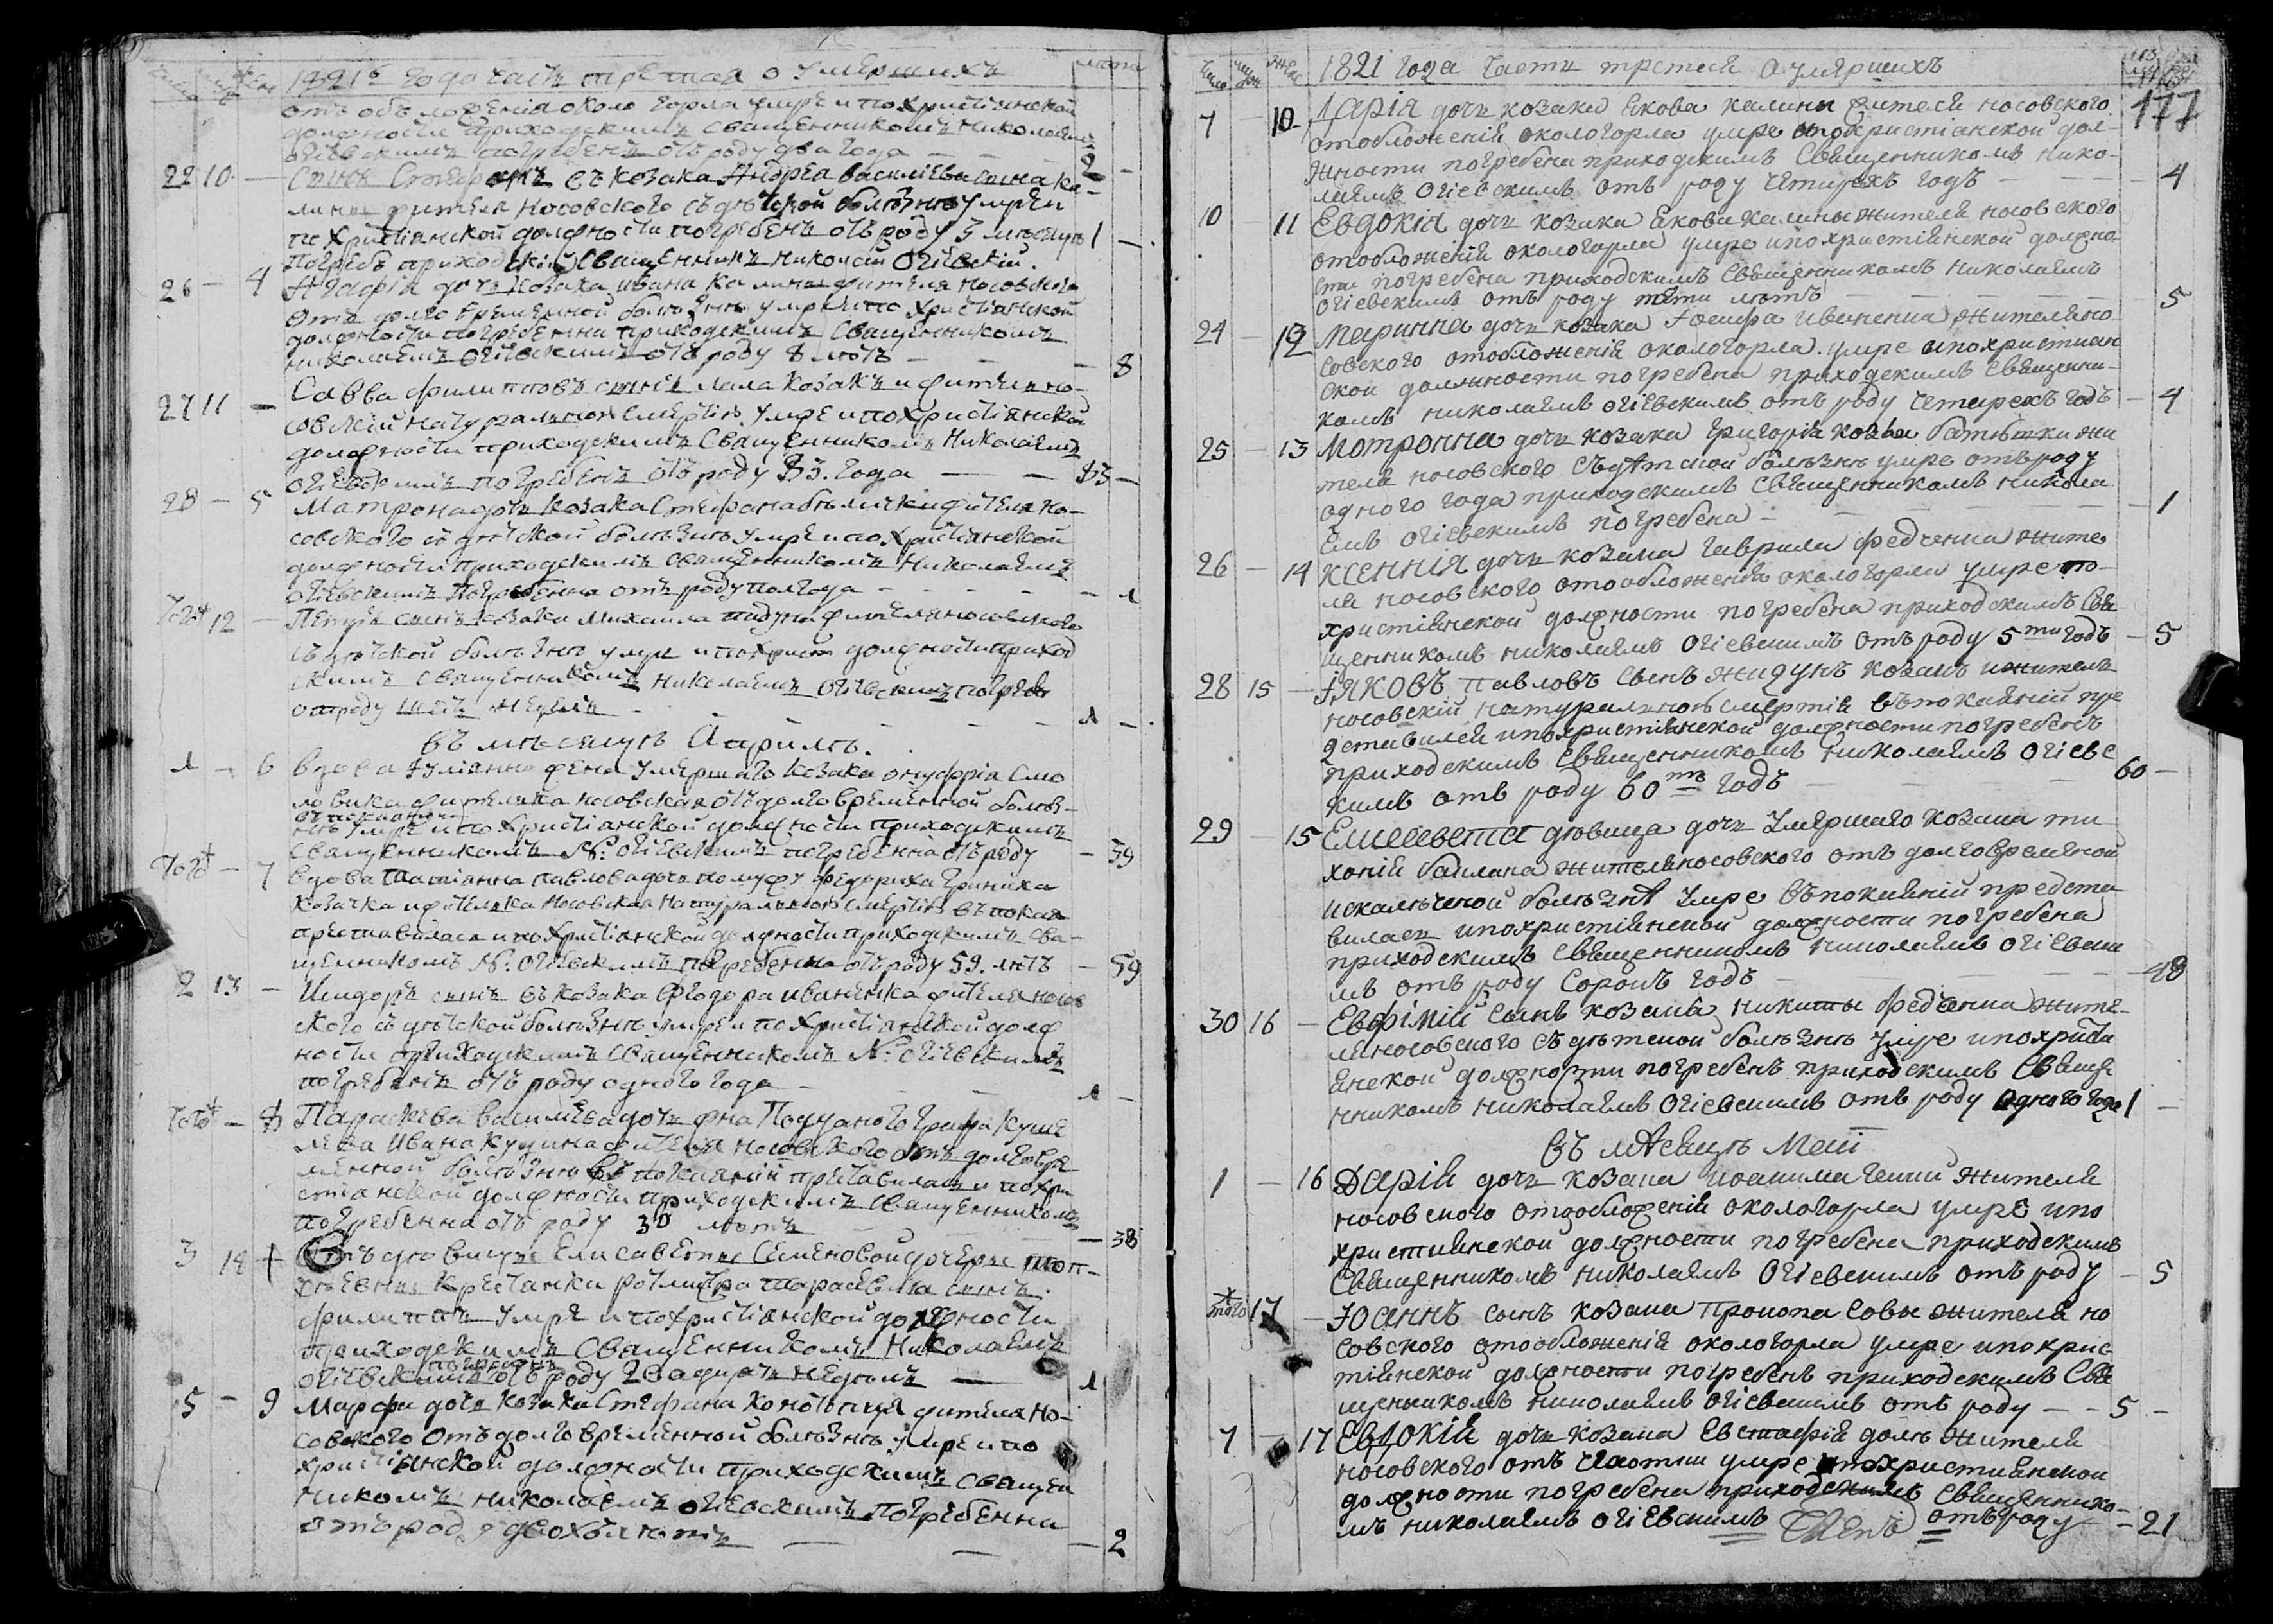 1821го года часть третая о умершихъ
лѣта
отъ обложенія около горла умре и по христіянской
должности приходскимъ священникомъ Николаемъ
огіевскимъ погребенъ отъ роду два года — 2 —
22 10 — сынъ Стефанъ съ козака Андрея василіева сина ка-
лины жителя носовского съ дѣтской болѣзнѣ умре и
по христіянской должности погребенъ отъ роду 5 мѣсяцъ 1 —
погребъ приходскій священникъ николай Огіевскій.
26 — 4 Агафія дочь козака ивана калины жителя носовского
отъ долговременной болѣзнѣ умре и по христіянской
должности погребенна приходскимъ священникомъ
николаемъ огіевскимъ отъ роду 8 лѣтъ — 8
27 11 — Савва филипповъ синъ козакъ и житель но-
совскій натуральною смертію умре и по христіянской
должности приходскимъ священникомъ Николаемъ
огіевскимъ погребенъ отъ роду 83. года — 83 —
28 — 5 Матрона дочь козака Стефана жителя но-
совского съ дѣтской болѣзнѣ умре и по христіянской
должности приходскимъ священникомъ Николаемъ
огіевскимъ погребенна отъ роду полгода — 1
Того* 12 — Петръ синъ козака михаила жителя носовского
съ дѣтской болѣзнѣ умре и по христ должности приход
скимъ священникомъ николаемъ огіевскимъ погребен
отъ роду шесть недель — 1 —
въ мѣсяцѣ Априлѣ.
1 — 6 вдова Іуліянна жена умершаго козака онуфрія смо
ловика жителка носовская отъ долговременной болѣз-
въ покаяніи
нѣ умре и по христіянской должности приходскимъ
священникомъ N: огіевскимъ погребенна отъ роду — 39
Того* — 7 вдова Татіянна павлова дочь по мужу Федориха
козачка и жителка носовская натуральною смертію въ покая
преставилася и по христіянской должности приходскимъ свя-
щенникомъ N: огіевскимъ погребенна отъ роду 59. лѣтъ — 59
2 13 — Исидоръ синъ съ козака Феодора иваненка жителя носов
ского съ дѣтской болѣзнѣ умре и по христіянской долж
ности приходскимъ священникомъ N: огіевскимъ
погребенъ отъ роду одного года — 1 —
Того* — 8 Параскева василіева дочь жена
Ивана жителя носовского отъ долговре
менной болѣзнѣ въ покаяній преставилась и по хри
стіанской должности приходскимъ священникомъ
погребенна отъ роду 38 лѣтъ — 38
3 14 + Отъ дѣвицы Елисаветы Семеновой дочери
крестянки ротмистра тарасевича синъ
филиппъ умре и по христіянской должности
приходскимъ священникомъ Николаемъ
погребенъ
огіевскимъ отъ роду недель — 1
5 — 9 Марфа дочь козака Стефана жителя но-
совского отъ долговременной болѣзнѣ умре и по
христіянской должности приходскимъ священ
никомъ николаемъ огіевскимъ погребенна
отъ роду двохъ лѣтъ — 2
число муж жен 1821 года Части третей о умершихъ
177
7 — 10 Дарія дочь козака Якова калины жителя носовского
отобложеній окологорла умре и по христіанской дол-
жности погребена приходскимъ Священникомъ нико-
лаемъ огіевскимъ отъ роду четирехъ годъ — 4
10 — 11 Евдокія дочь козака Якова калины жителя носовского
отобложеній окологорла умре и по христіянской должно
сти погребена приходскимъ Священникомъ николаемъ
огіевскимъ отъ роду пяти лѣтъ — 5
24 — 12 Маринна дочь козака Іосифа иваненка жителя но-
совского отобложенія окологорла умре и по христиан
ской должности погребена приходскимъ Священни-
комъ николаемъ огіевскимъ отъ роду четирехъ годъ — 4
25 — 13 Мотронна дочь козака григорія жи
теля носовского съ дѣтской болѣзнѣ умре отъ роду
одного года приходскимъ Священникомъ никола
емъ огіевскимъ погребена — 1
26 — 14 Ксеннія дочь козака гаврила федченка жите
ля носовского отообложенія окологорла умре по
христіянской должности погребена приходскимъ Свя
щенникомъ николаемъ огіевскимъ отъ роду 5ти годъ — 5
28 15 — Іяковъ павловъ сынъ жидунъ козакъ и житель
носовскій натуральною смертію въ покаяній пре
дставился и по христіянской должности погребенъ
приходскимъ Священникомъ николаемъ огіевс
кимъ отъ роду 60тъ годъ — 60 —
29 — 15 Елисевета дѣвица дочь умершаго козака ти
жителя носовского отъ долговременной
болѣзнѣ умре въ покаяній предста
вилась и по христіянской должности погребена
приходскимъ Священникомъ николаемъ огіевски
мъ отъ роду Сорокъ годъ — 40
30 16 — Евфімій сынъ козака никиты федченка жите-
ля носовского съ дѣтской болѣзнѣ умре и по христі
янской должности погребенъ приходскимъ Священ
нникомъ николаемъ огіевскимъ отъ роду одного года 1 —
Въ мѣсяцѣ Маѣ
1 — 16 Дарія дочь козака жителя
носовского отообложеній окологорла умре и по
христіянской должности погребена приходскимъ
Священникомъ николаемъ Огіевскимъ отъ роду — 5
того* 17 — Іоаннъ сынъ козака прокопа совы жителя но
совского отообложеній окологорла умре и по хрис
тіянской должности погребенъ приходскимъ Свя
щенникомъ николаемъ огіевскимъ отъ роду — 5 —
7 — 17 Евдокія дочь козака Евстафія жителя
носовского отъ умре и по християнской
должности погребена приходскимъ Священнико-
мъ николаемъ огіевскимъ отъ роду — 21